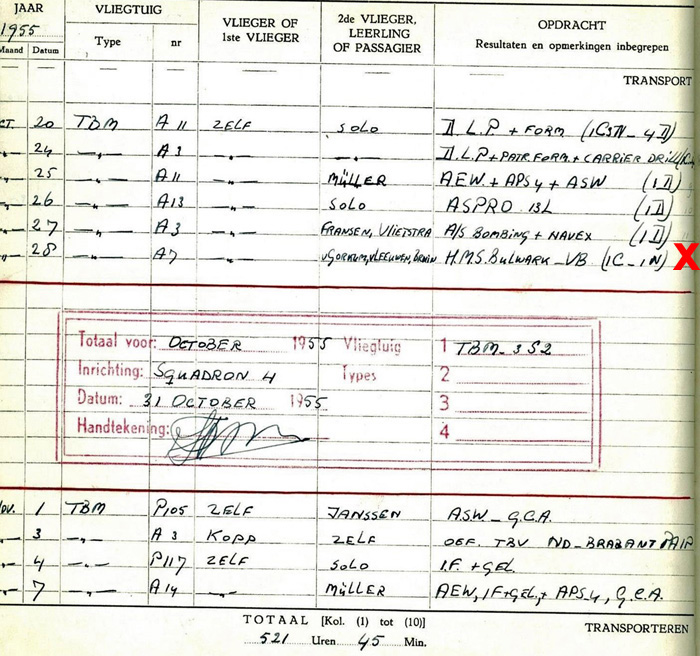 JAAR VLIEGTUIG VLIEGER OF 1ste VLIEGER 2de VLIEGER, LEERLING OF PASSAGIER OPDRACHT
1955 Resultaten en opmerkingen inbegrepen
Maand Datum Type nr
TRANSPORT
CT. 20 TBM A 11 ZELF SOLO D.L.P + FORM
24 A 3 D.L.P + PATR. FORM. + CARRIER DRILL
25 A 11 MÜLLER A.E.W. + APS4 + ASW
26 A13 SOLO ASPRO 13L
27 A 3 FRANSEN, VLIETSTRA A/S BOMBING + NAVEX
28 A7 H.M.S. BULWARK - VB (1C - 1N) X
Totaal voor: OCTOBER 1955 Vliegtuig 1 TBM-3S2
Inrichting: SQUADRON 4 Types 2
Datum: 31 OCTOBER 1955 3
Handtekening: 4
OV. 1 TBM P105 ZELF JANSSEN A.S.W - G.C.A.
3 A 3 KOPP ZELF OEF. TBV ND-BRABANT
4 P117 ZELF SOLO I.F. + GEL.
7 A 14 MÜLLER AEW, IF+GEL, + APS4, G.C.A.
TOTAAL [Kol. (1) tot (10)]
521 Uren 45 Min. TRANSPORTEREN